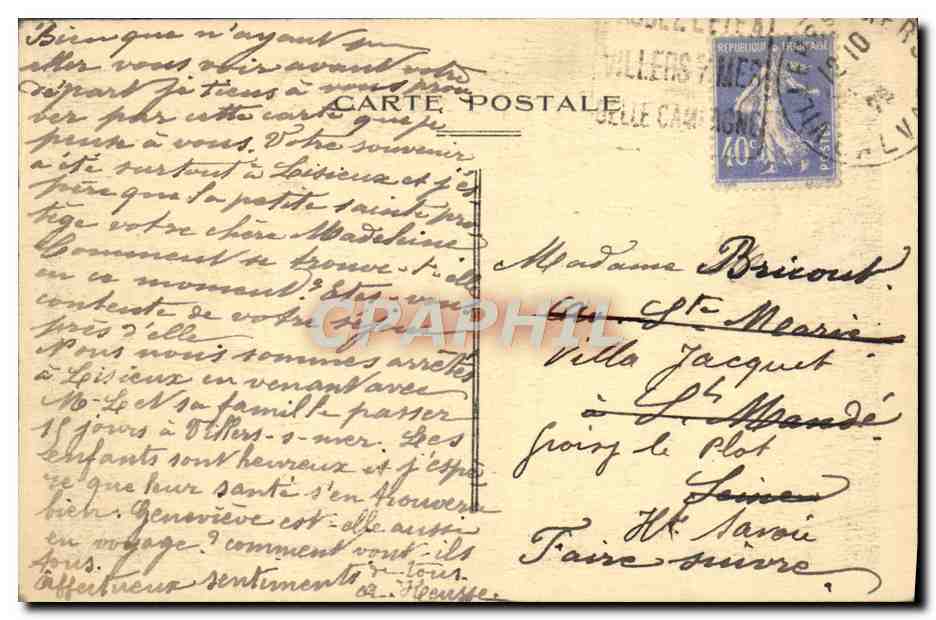 Bien que n'ayant pu
aller vous voir avant votre
départ je tiens à vous prou
ver par cette carte que je
pense à vous. Votre souvenir
a été surtout à Lisieux et j'es
père que la petite sainte pro
tège votre chère Madeleine
Comment se trouve-t-elle
en ce moment? Etes-vous
contente de votre séjour
près d'elle
Nous nous sommes arrêtés
à Lisieux en venant avec
M-L et sa famille passer
15 jours à Villers-s-mer. Les
enfants sont heureux et j'espè
re que leur santé s'en trouvera
bien. Geneviève est-elle aussi
en voyage? comment vont-ils
tous.
Affectueux sentiments à tous.
CARTE POSTALE
VILLERS S/MER
BELLE CAMPAGNE
REPUBLIQUE FRANÇAISE
40c
POSTES
12 10
CPAPHIL
Madame Bricout
Av. Ste Marie
Villa Jacquet
à St Mandé
Groisy le Plot
Seine
Hte Savoie
Faire suivre